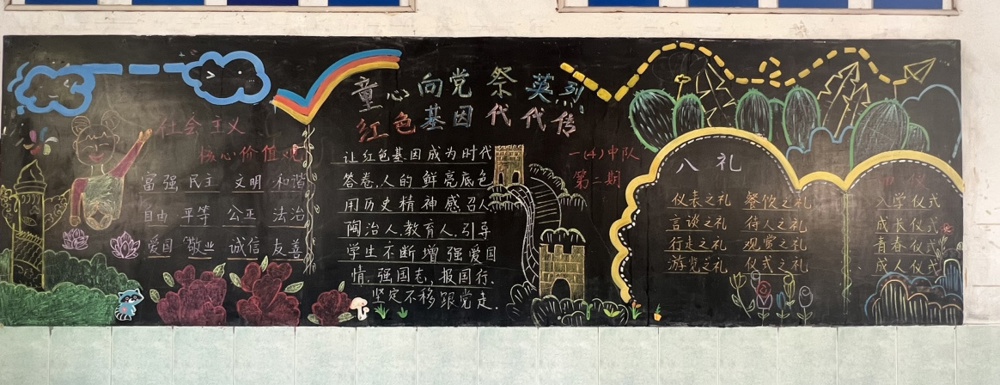 社会主义
核心价值观
富强 民主 文明 和谐
自由 平等 公正 法治
爱国 敬业 诚信 友善
童心向党 祭英烈
红色基因代代传
让红色基因成为时代
答卷,人的 鲜亮底色
用历史精神感召人
陶冶人,教育人.引导
学生不断增强爱国
情,强国志,报国行.
坚定不移跟党走.
一(4)中队
第二期
八 礼
仪表之礼 餐饮之礼
言谈之礼 待人之礼
行走之礼 观赏之礼
游览之礼 仪式之礼
入学仪式
成长仪式
青春仪式
成人仪式